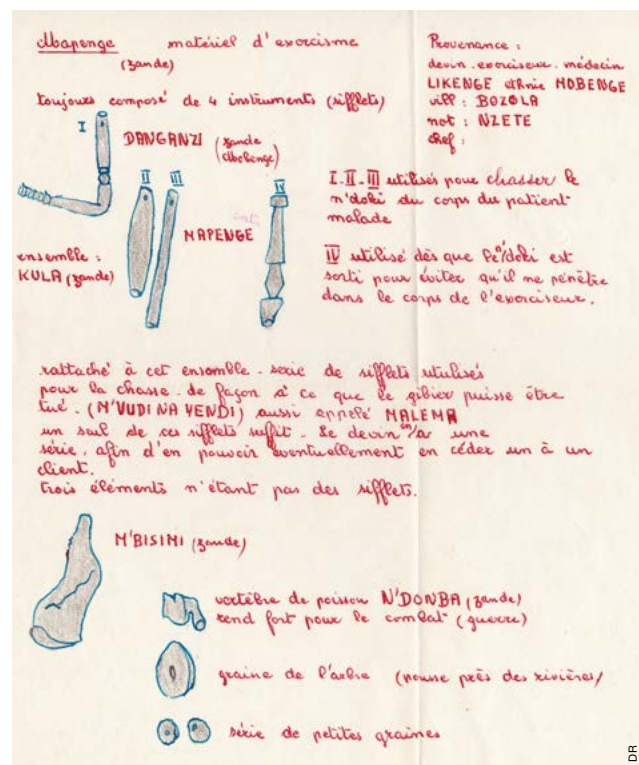 Mapenge matériel d'exorcisme
(zande)
Provenance :
devin-exorciseur-médecin
LIKENGE ethnie MOBENGE
vill : BOZOLA
not : NZETE
chef :
toujours composé de 4 instruments (sifflets)
I
DANGANZI (zande
Mobenge)
II III
IV
MAPENGE
ensemble :
KULA (zande)
I-II-III utilisés pour chasser le
n'doki du corps du patient
malade
IV utilisé dès que le n'doki est
sorti pour éviter qu'il ne pénètre
dans le corps de l'exorciseur.
rattaché à cet ensemble - série de sifflets utilisés
pour la chasse - de façon à ce que le gibier puisse être
tué. (M'VUDI NA VENDI) aussi appelé MALEMA
un seul de ces sifflets suffit. Le devin en a une
série, afin d'en pouvoir éventuellement en céder un à un
client.
trois éléments n'étant pas des sifflets.
M'BISIMI (zande)
vertèbre de poisson N'DONBA (zande)
rend fort pour le combat (guerre)
graine de l'arbre (pousse près des rivières/
série de petites graines
DR